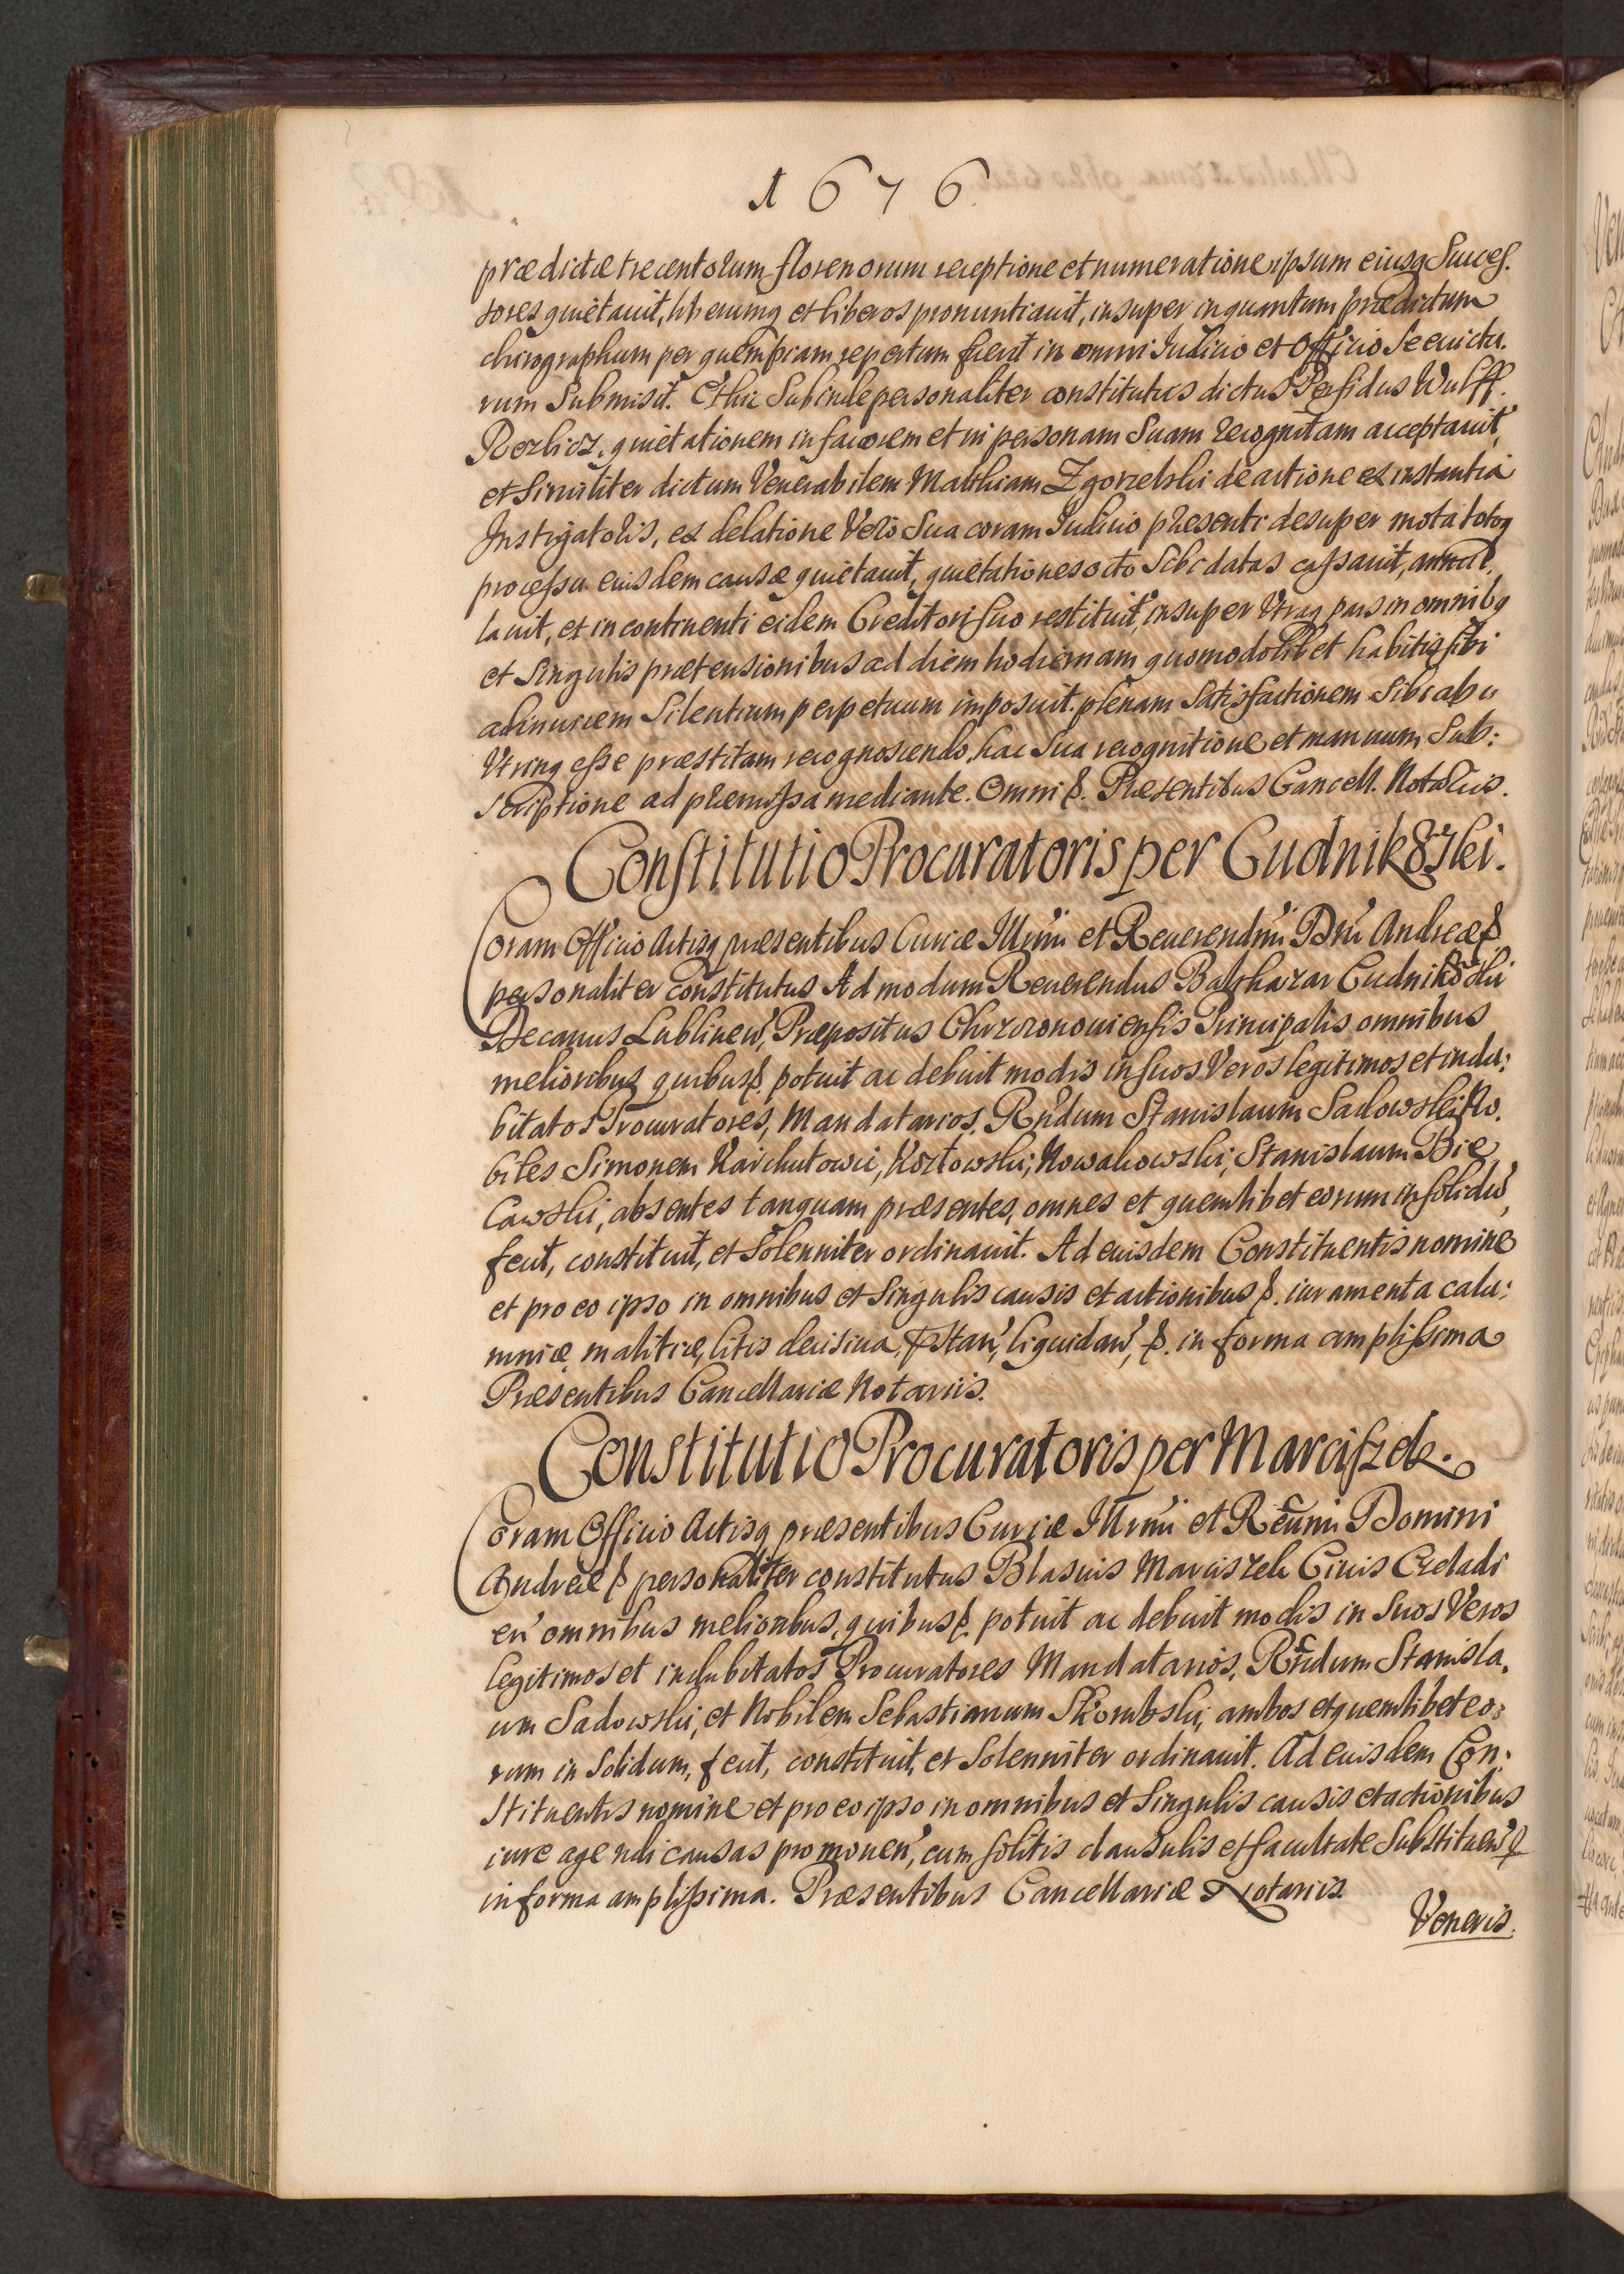 1676.
prædictæ trecentorum florenorum receptione et numeratione ipsum eiusq Succes.
sores quietauit, liberumq et liberos pronuntiauit, insuper inquantum prædictum
chirographum per quempiam repertum fuerit in omni Iudicio et Officio Se euictu.
rum Submisit. Et hic Subinde personaliter constitutus dictus Perfidus Wulff.
Rozlicz, quietationem in fauorem et in personam Suam recognitam acceptauit,
et Similiter dictum Venerabilem Matthiam Zgorzelski de actione ex instantia
Instigatoris, ex delatione Vero Sua coram Iudicio præsenti desuper mota totoq
processu eiusdem causæ quietauit, quietationes octo Sibi datas cassauit, annul.
lauit, et in continenti eidem Creditori suo restituit, insuper Vtraq pars in omnibq
et Singulis prætensionibus ad diem hodiernam quomodolibet habitis sibi
adinuicem Silentium perpetuum imposuit. plenam Satisfactionem Sibi ab u
Vtrinq esse præstitam recognoscendo, hac Sua recognitione et manuum Sub:
scriptione ad præmissa mediante. Omni &. Præsentibus Cancell. Notariis.
Constitutio Procuratoris per Cudnikowski.
Coram Officio Actisq præsentibus Curiæ Illrmi et Reuerendmi Dni Andreæ &
personaliter constitutus Admodum Reuerendus Balthazar Cudnikowski
Decanus Lublinen, Præpositus Chrzczonouiensis Principalis omnibus
melioribus quibus &. potuit ac debuit modis in suos Veros legitimos et indu:
bitatos Procuratores, Mandatarios, Rndum Stanislaum Sadowski No.
biles Simonem Narchutowic, Kozłowski, Nowakowski, Stanislaum Bie
Lawski, absentes tanquam præsentes, omnes et quemlibet eorum in solidu,
fecit, constituit, et Solenniter ordinauit. Ad euisdem Constituentis nomine
et pro eo ipso in omnibus et Singulis causis et actionibus &. iuramenta calu:
mniæ, malitiæ, litis decisiua, Pstan, liquidan, &. in forma amplissima
Præsentibus Cancellariæ Notariis.
Constitutio Procuratoris per Marciszek.
Coram Officio Actisq præsentibus Curiæ Illrmi et Reumi Domini
Andreæ & personaliter constitutus Blasius Marciszek Ciuis Czeladi
en omnibus melioribus, quibus &. potuit ac debuit modis in Suos Veros
legitimos et indubitatos Procuratores Mandatarios, Rndum Stanisla.
um Sadowski, et Nobilem Sebastianum Skrombski, ambos et quemlibet eo:
rum in Solidum, fecit, constituit, et Solenniter ordinauit. Ad euisdem Con:
stituentis nomine et pro eo ipso in omnibus et Singulis causis et actionibus
iure agendi causas promouen, cum solitis clausulis et facultate Substituen &
in forma amplissima. Præsentibus Cancellariæ Notariis.
Veneris.